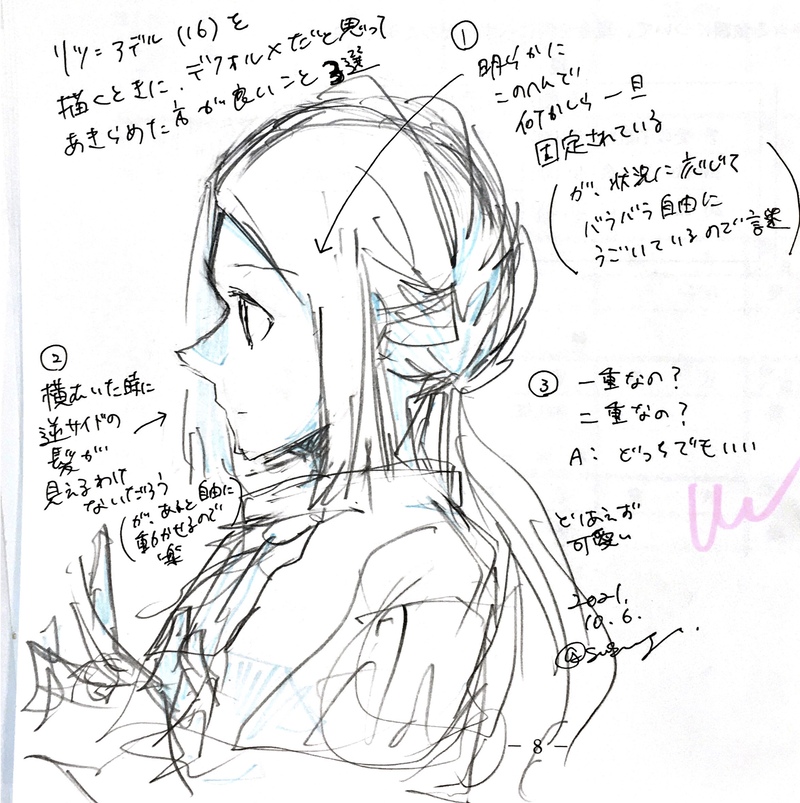 リツ=アデル (16) を
描くときに、デフォルメだと思って
あきらめた方が良いこと3選
①
明らかに
このへんで
何かしら一旦
固定されている
(が、状況に応じて
バラバラ自由に
うごいているので謎)
②
横むいた時に
逆サイドの
髪が
見えるわけ
ないだろう
(が、あんと自由に
動かせるので
楽)
③ 一重なの?
二重なの?
A: どっちでもいい
とはえず
可愛い
2021.
10.6.
- 8 -